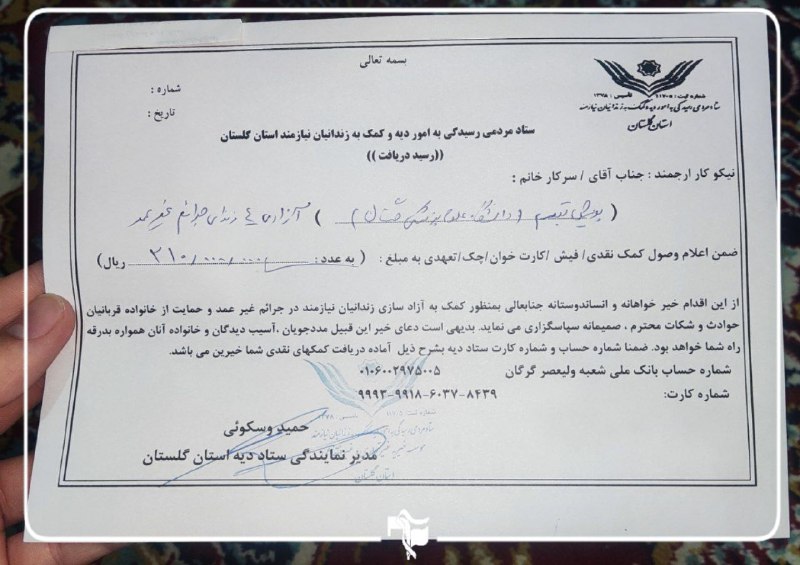 بسمه تعالی
شماره :
تاریخ :
شماره ثبت : ۱۱۷۰۵ تاسیس : ۱۳۷۸
ستاد مردمی رسیدگی به امور دیه و کمک به زندانیان نیازمند
استان گلستان
ستاد مردمی رسیدگی به امور دیه و کمک به زندانیان نیازمند استان گلستان
((رسید دریافت ))
نیکو کار ارجمند : جناب آقای / سرکار خانم :
( دانشگاه علوم پزشکی ) آزادی زندانی جرائم غیر عمد
ضمن اعلام وصول کمک نقدی/ فیش /کارت خوان/چک/تعهدی به مبلغ : ( به عدد : ۳۱۰/۰۰۰/۰۰۰ ریال)
از این اقدام خیر خواهانه و انساندوستانه جنابعالی بمنظور کمک به آزاد سازی زندانیان نیازمند در جرائم غیر عمد و حمایت از خانواده قربانیان
حوادث و شکات محترم ، صمیمانه سپاسگزاری می نماید. بدیهی است دعای خیر این قبیل مددجویان ،آسیب دیدگان و خانواده آنان همواره بدرقه
راه شما خواهد بود. ضمنا شماره حساب و شماره کارت ستاد دیه بشرح ذیل آماده دریافت کمکهای نقدی شما خیرین می باشد.
شماره حساب بانک ملی شعبه ولیعصر گرگان ۰۱۰۶۰۰۲۹۷۵۰۰۵
شماره کارت: ۹۹۹۳-۹۹۱۸-۶۰۳۷-۸۴۳۹
حمید وسکوئی
مدیر نمایندگی ستاد دیه استان گلستان
استان گلستان